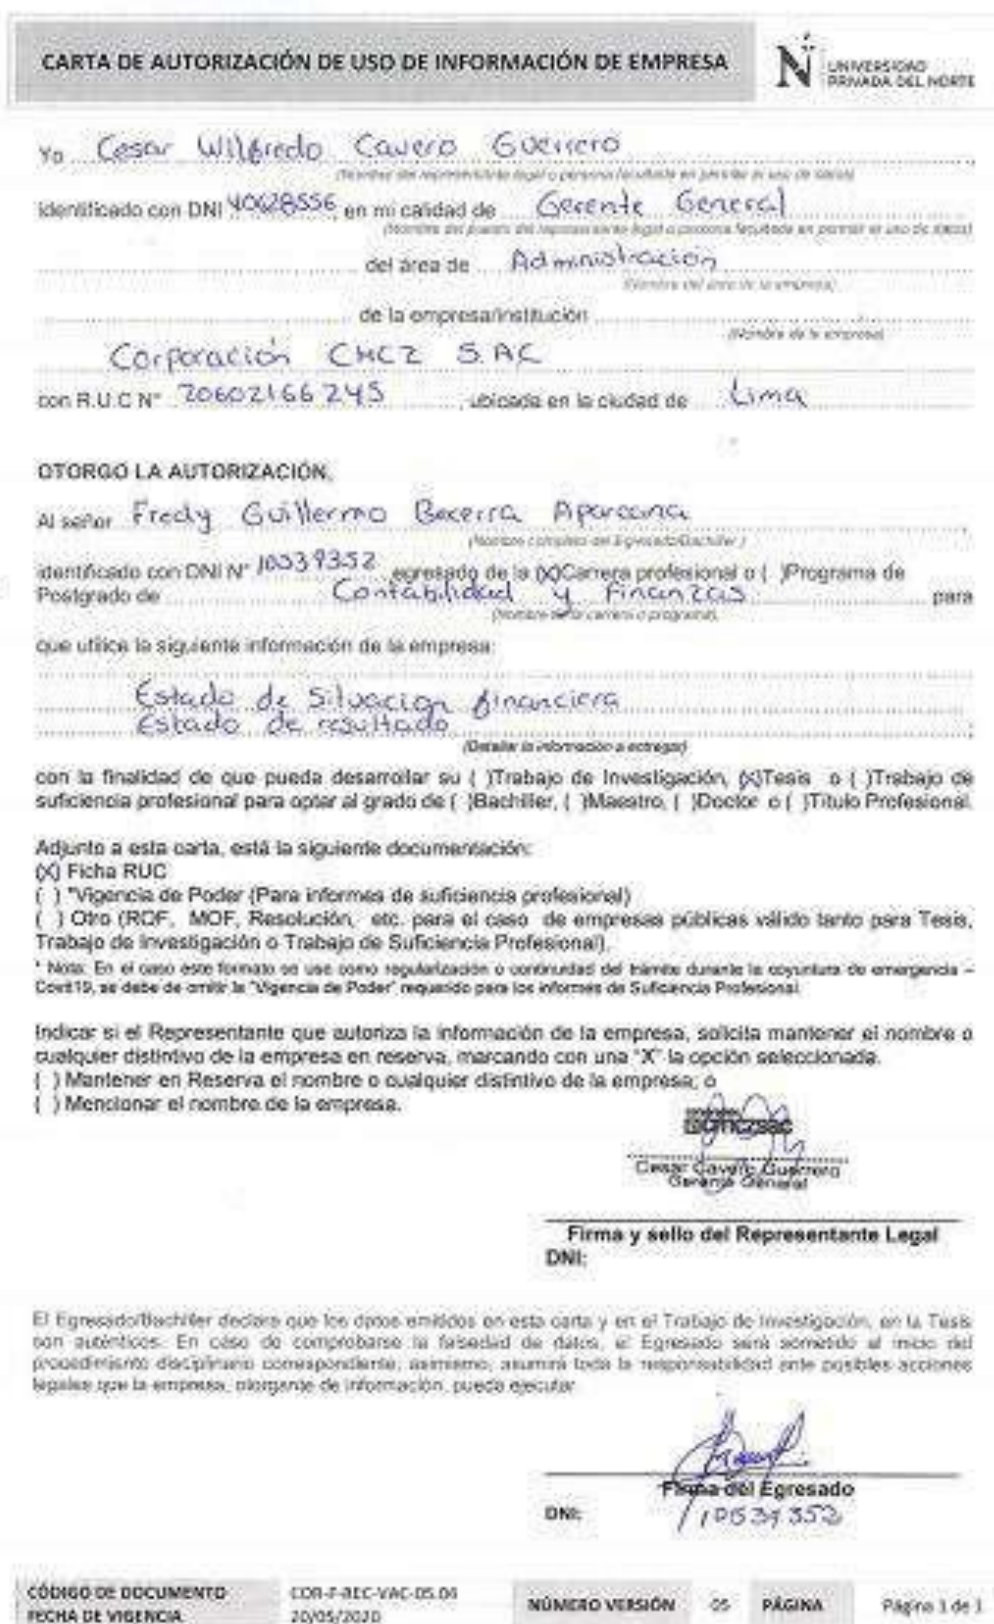 CARTA DE AUTORIZACIÓN DE USO DE INFORMACIÓN DE EMPRESA
UNIVERSIDAD
PRIVADA DEL NORTE
Yo Cesar Wilfredo Cavero Guerrero
(Nombre del representante legal o persona facultada en permitir el uso de datos)
identificado con DNI 40628556, en mi calidad de Gerente General
(Nombre del puesto del representante legal o persona facultada en permitir el uso de datos)
del área de Administración
(Nombre del área de la empresa)
de la empresa/institución
(Nombre de la empresa)
Corporación CHCZ S.AC
con R.U.C N° 20602166245, ubicada en la ciudad de Lima
OTORGO LA AUTORIZACIÓN,
Al señor Fredy Guillermo Becerra Aparcana
(Nombre completo del Egresado/Bachiller)
identificado con DNI N° egresado de la (X)Carrera profesional o ( )Programa de
Postgrado de Contabilidad y Finanzas para
(Nombre de la carrera o programa),
que utilice la siguiente información de la empresa:
Estado de Situacion financiera
Estado de resultado
(Detallar la información a entregar)
con la finalidad de que pueda desarrollar su ( )Trabajo de Investigación, (X)Tesis o ( )Trabajo de
suficiencia profesional para optar al grado de ( )Bachiller, ( )Maestro, ( )Doctor o ( )Título Profesional.
Adjunto a esta carta, está la siguiente documentación:
(X) Ficha RUC
( ) *Vigencia de Poder (Para informes de suficiencia profesional)
( ) Otro (ROF, MOF, Resolución, etc. para el caso de empresas públicas válido tanto para Tesis,
Trabajo de Investigación o Trabajo de Suficiencia Profesional).
* Nota: En el caso este formato se use como regularización o continuidad del trámite durante la coyuntura de emergencia –
Covid19, se debe de omitir la "Vigencia de Poder" requerido para los informes de Suficiencia Profesional.
Indicar si el Representante que autoriza la información de la empresa, solicita mantener el nombre o
cualquier distintivo de la empresa en reserva, marcando con una "X" la opción seleccionada.
( ) Mantener en Reserva el nombre o cualquier distintivo de la empresa; o
( ) Mencionar el nombre de la empresa.
Cesar Cavero Guerrero
Gerente General
Firma y sello del Representante Legal
DNI:
El Egresado/Bachiller declara que los datos emitidos en esta carta y en el Trabajo de Investigación, en la Tesis
son auténticos. En caso de comprobarse la falsedad de datos, el Egresado será sometido al inicio del
procedimiento disciplinario correspondiente; asimismo, asumirá toda la responsabilidad ante posibles acciones
legales que la empresa, otorgante de información, pueda ejecutar.
Firma del Egresado
DNI:
CÓDIGO DE DOCUMENTO COR-F-REC-VAC-05.04 NÚMERO VERSIÓN 05 PÁGINA Página 1 de 1
FECHA DE VIGENCIA 20/05/2020